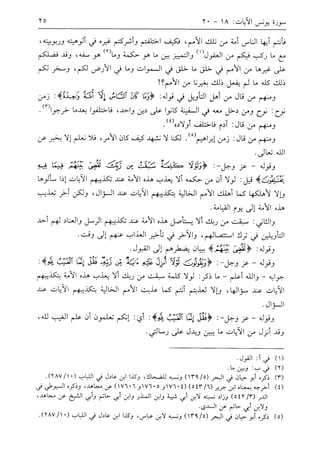 سورة يونس الآيات: ١٨ - ٢٠ ٢٥
فأنتم أيها الناس أمة من تلك الأمم، فكيف اختلفتم وأشركتم غيره في ألوهيته وربوبيته،
مع ما ركب فيكم من العقول(١) والتمييز بين ما هو حكمة وما(٢) هو سفه، وقد فضلكم
على غيرها من الأمم في خلق ما خلق في السموات وما في الأرض لكم، وسخر لكم
ذلك كله ما لم يفعل ذلك بغيرنا من الأمم؟!
ومنهم من قال من أهل التأويل في قوله: ﴿وَمَا كَانَ النَّاسُ إِلَّا أُمَّةً وَاحِدَةً فَاخْتَلَفُوا﴾: زمن
نوح؛ نوح ومن دخل معه في السفينة كانوا على دين واحد، فاختلفوا بعدما خرجوا(٣).
ومنهم من قال: آدم فاختلف أولاده(٤).
ومنهم من قال: زمن إبراهيم(٥). لكنا لا نشهد كيف كان الأمر، فلا نعلم إلا بخبر عن
الله تعالى.
وقوله - عز وجل-: ﴿وَلَوْلَا كَلِمَةٌ سَبَقَتْ مِن رَّبِّكَ لَقُضِيَ بَيْنَهُمْ فِيمَا فِيهِ
يَخْتَلِفُونَ﴾ قيل: لولا أن من حكمه ألا يعذب هذه الأمة عند تكذيبهم الآيات إذا سألوها
وإلا لأهلكها كما أهلك الأمم الخالية بتكذيبهم الآيات عند السؤال، ولكن أخر تعذيب
هذه الأمة إلى يوم القيامة.
والثاني: سبقت من ربك ألا يستأصل هذه الأمة عند تكذيبهم الرسل والعناد لهم أحد
التأويلين في ترك استئصالهم، والآخر في تأخير العذاب عنهم إلى وقت.
وقوله: ﴿لَقُضِيَ بَيْنَهُمْ﴾ ببيان يضطرهم إلى القبول.
وقوله - عز وجل-: ﴿وَيَقُولُونَ لَوْلَا أُنزِلَ عَلَيْهِ آيَةٌ مِّن رَّبِّهِ فَقُلْ إِنَّمَا الْغَيْبُ لِلَّهِ﴾:
جوابه - والله أعلم - ما ذكر: لولا كلمة سبقت من ربك ألا يعذب هذه الأمة بتكذيبهم
الآيات عند سؤالها، وإلا لعذبتم أنتم كما عذبت الأمم الخالية بتكذيبهم الآيات عند
السؤال.
وقوله - عز وجل-: ﴿فَقُلْ إِنَّمَا الْغَيْبُ لِلَّهِ﴾: أي: إنكم تعلمون أن علم الغيب لله،
وقد أنزل من الآيات ما يبين ويدل على رسالتي.
(١) في أ: القول.
(٢) في ب: وبين ما.
(٣) ذكره أبو حيان في البحر (١٣٩/٥) ونسبه للضحاك، وكذا ابن عادل في اللباب (٢٨٧/١٠).
(٤) أخرجه بمعناه ابن جرير (٥٤٣/٦) (١٧٦٠٤) و (١٧٦٠٥ و ١٧٦٠٦) عن مجاهد، وذكره السيوطي في
الدر (٥٤٢/٣) وزاد نسبته لابن أبي شيبة وابن المنذر وابن أبي حاتم وأبي الشيخ عن مجاهد،
ولابن أبي حاتم عن السدي.
(٥) ذكره أبو حيان في البحر (١٣٩/٥) ونسبه لابن عباس، وكذا ابن عادل في اللباب (٢٨٧/١٠).